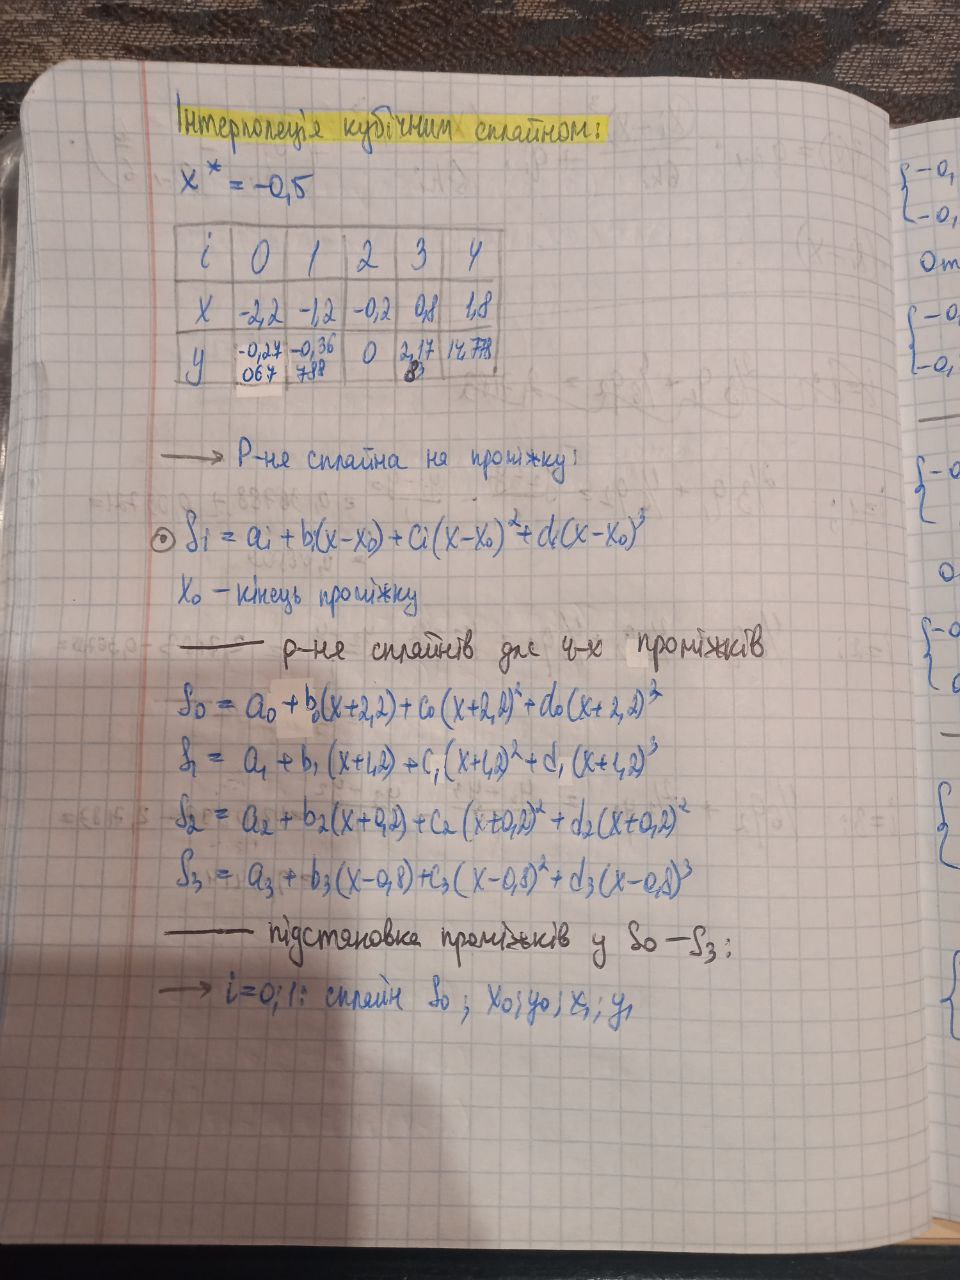 Інтерполяція кубічним сплайном:
x* = -0,5
i 0 1 2 3 4
x -2,2 -1,2 -0,2 0,8 1,8
y -0,27067 -0,36788 0 2,1783 14,778
→ Р-ня сплайна на проміжку:
⊙ Si = ai + bi(x-x0) + ci(x-x0)² + di(x-x0)³
x0 - кінець проміжку
— р-ня сплайнів для 4-х проміжків
S0 = a0 + b0(x+2,2) + c0(x+2,2)² + d0(x+2,2)³
S1 = a1 + b1(x+1,2) + c1(x+1,2)² + d1(x+1,2)³
S2 = a2 + b2(x+0,2) + c2(x+0,2)² + d2(x+0,2)²
S3 = a3 + b3(x-0,8) + c3(x-0,8)² + d3(x-0,8)³
— підстановка проміжків у S0 - S3:
→ i=0;1: сплайн S0; x0; y0; x1; y1